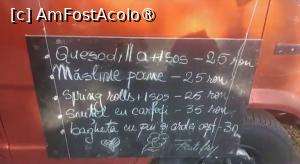 [c] AmFostAcolo®
Quesadilla + sos – 25 ron
Măsline pane – 25 ron
Spring rolls + sos – 25 ron
Snitel cu cartofi – 35 ron
baghetă cu pui și ardei copt – 30